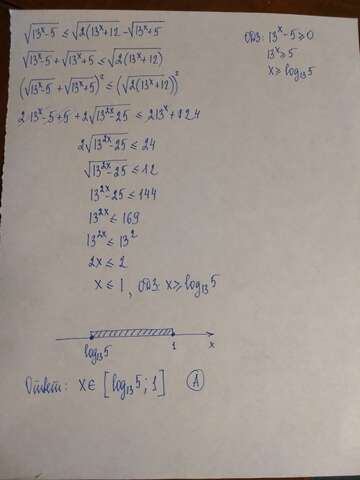 √(13ˣ-5) ≤ √(2(13ˣ+12)) - √(13ˣ+5)
ОДЗ: 13ˣ-5≥0
13ˣ≥5
x≥log₁₃5
√(13ˣ-5) + √(13ˣ+5) ≤ √(2(13ˣ+12))
(√(13ˣ-5) + √(13ˣ+5))² ≤ (√(2(13ˣ+12)))²
2·13ˣ-5+5 + 2√(13²ˣ-25) ≤ 2·13ˣ+24
2√(13²ˣ-25) ≤ 24
√(13²ˣ-25) ≤ 12
13²ˣ-25 ≤ 144
13²ˣ ≤ 169
13²ˣ ≤ 13²
2x ≤ 2
x ≤ 1, ОДЗ: x≥log₁₃5
log₁₃5 1 x
Ответ: x∈[log₁₃5; 1] А